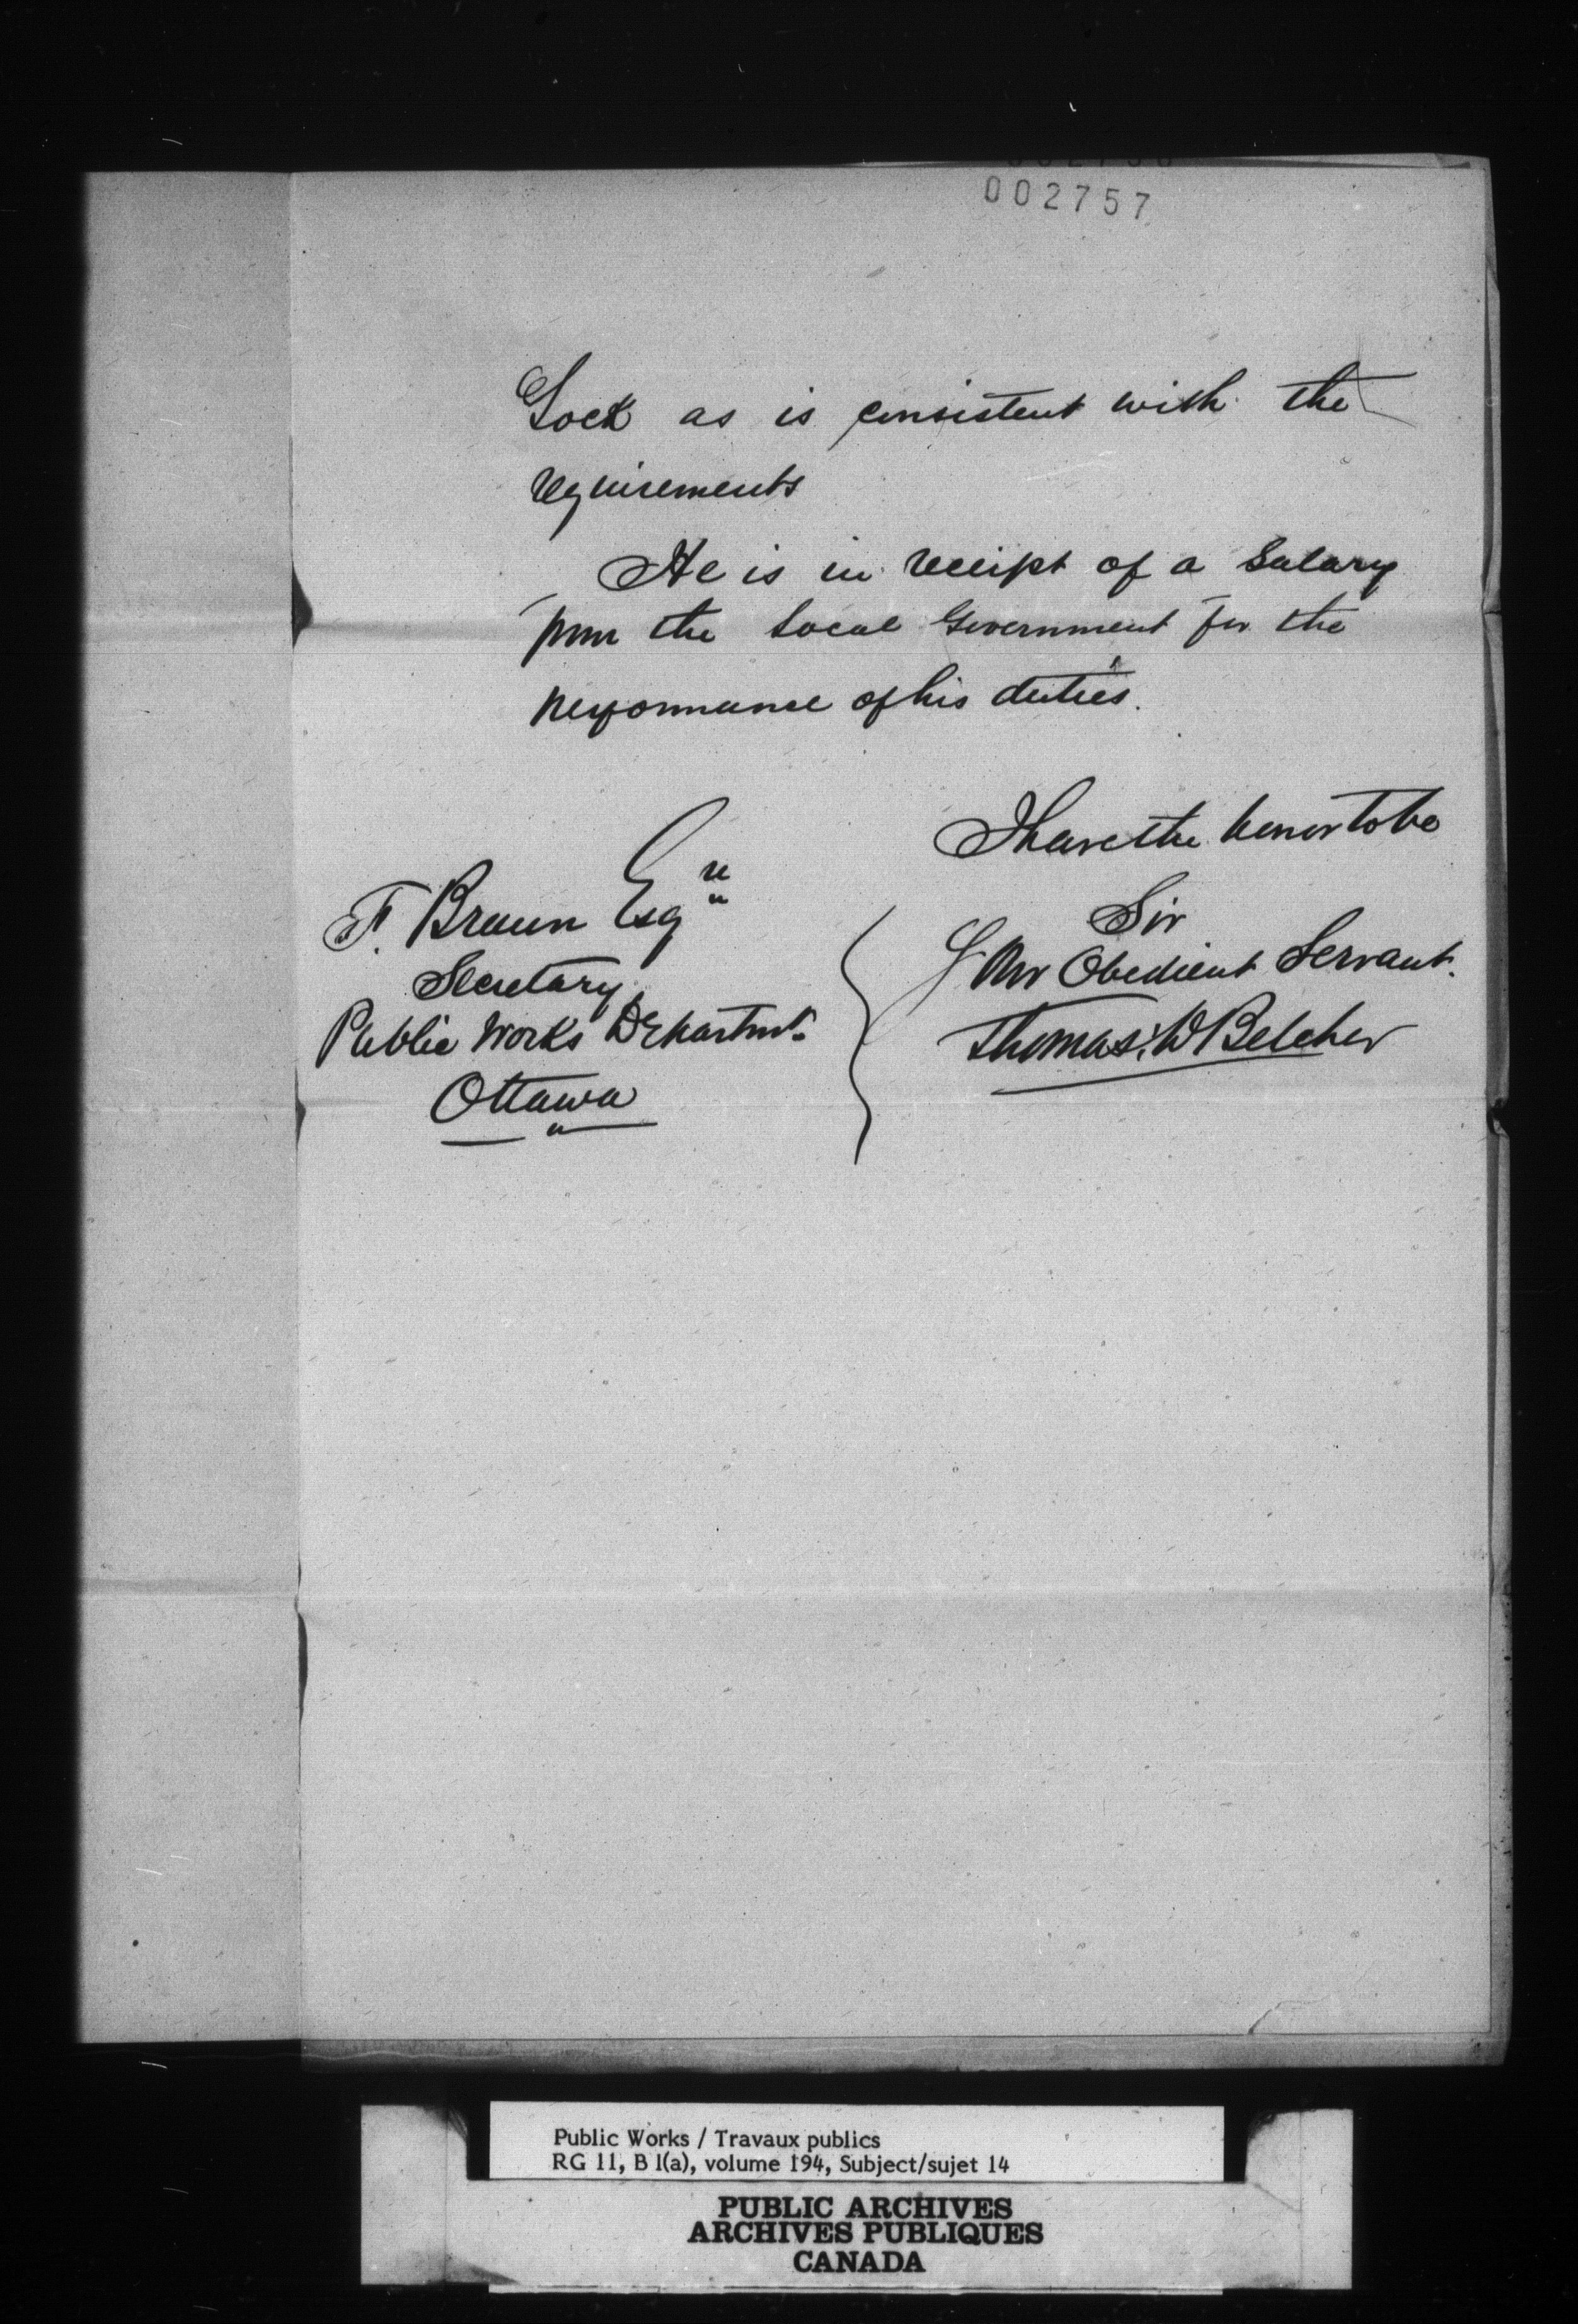 002757
Lock as is consistent with the
requirements
He is in receipt of a Salary
from the Local Government for the
performance of his duties.
I have the honor to be
Sir
Yr Obedient Servant.
Thomas. W Belcher
F. Braun Esqre
Secretary
Public Works Departmt.
Ottawa
Public Works / Travaux publics
RG 11, B 1(a), volume 194, Subject/sujet 14
PUBLIC ARCHIVES
ARCHIVES PUBLIQUES
CANADA